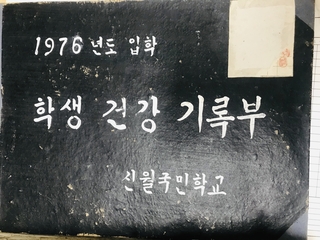 1976 년도 입학
학생 건강 기록부
신월국민학교